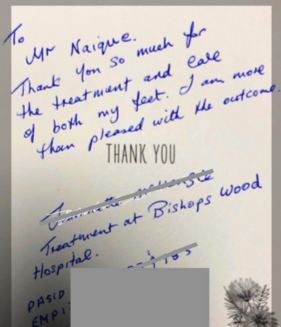 To
Mr Naique.
Thank you so much for
the treatment and care
of both my feet. I am more
than pleased with the outcome.
THANK YOU
Treatment at Bishops Wood
Hospital.